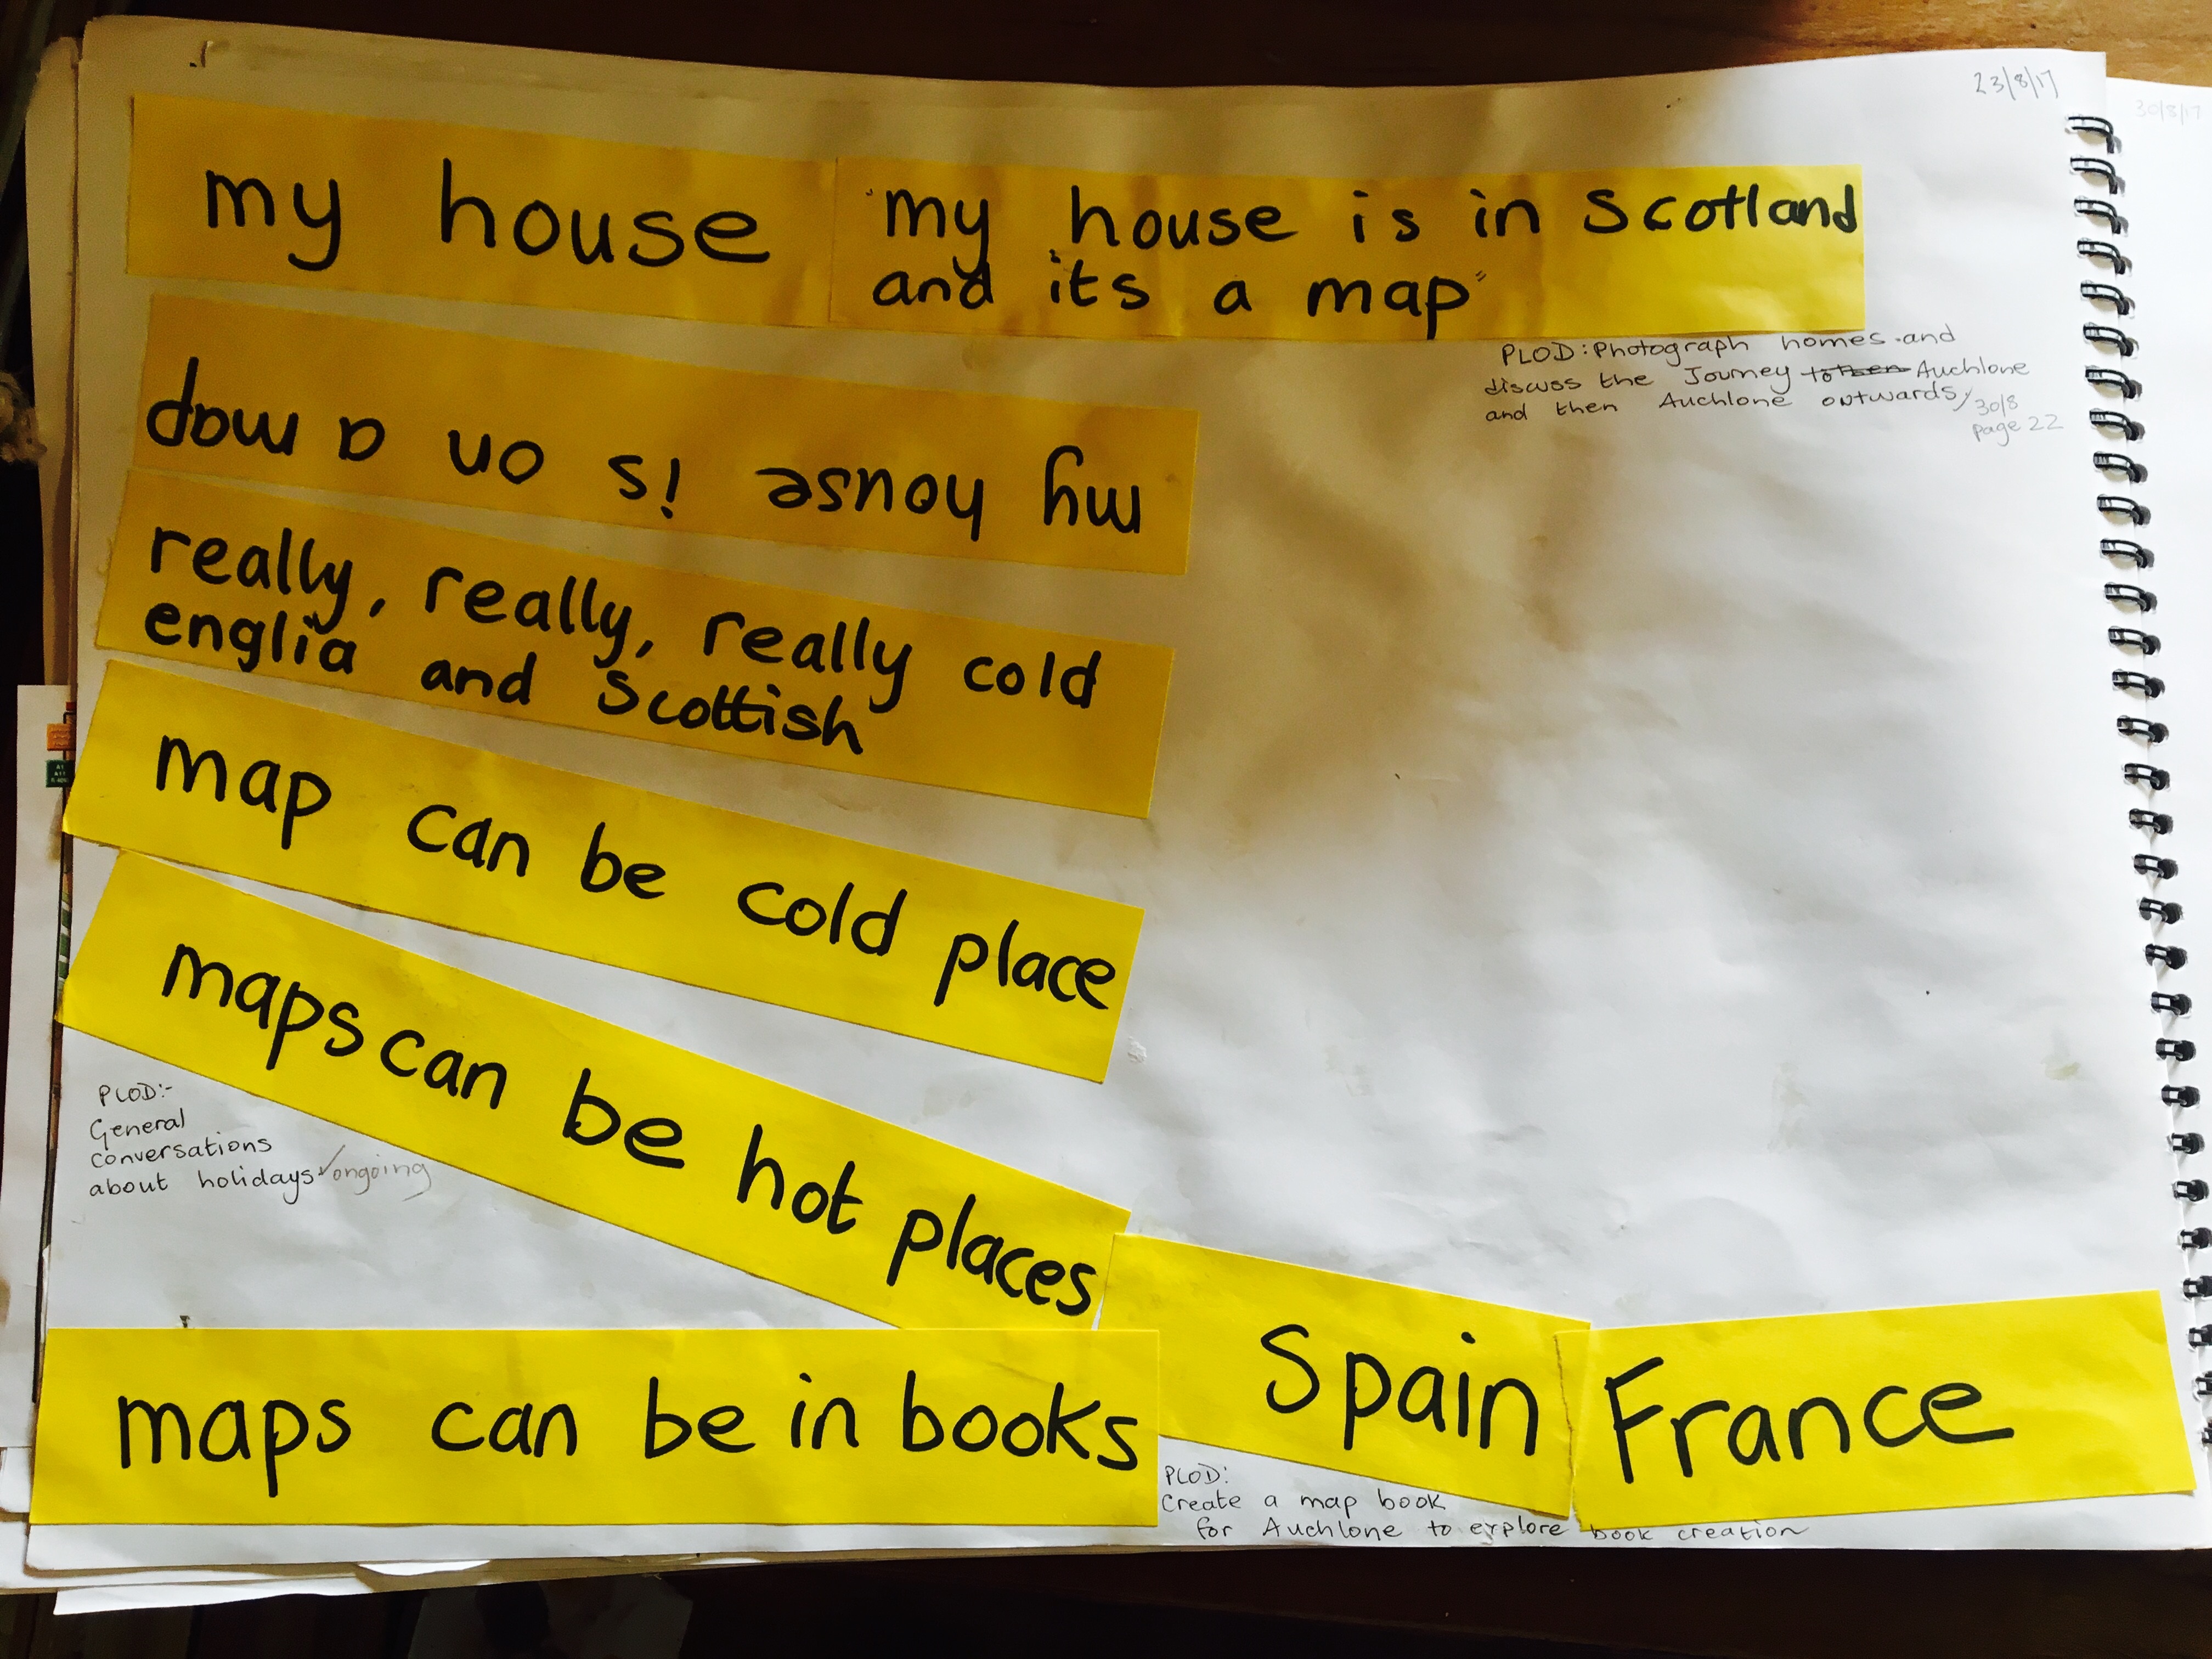 23/8/17
30/8/17
my house
"my house is in Scotland
and its a map"
PLOD: Photograph homes and
discuss the Journey to Auchlone
and then Auchlone outwards
30/8
page 22
my house is on a map
really, really, really cold
englia and Scottish
map can be cold place
maps can be hot places
PLOD:-
General
conversations
about holidays ✓ongoing
Spain
France
maps can be in books
PLOD:
Create a map book
for Auchlone to explore book creation